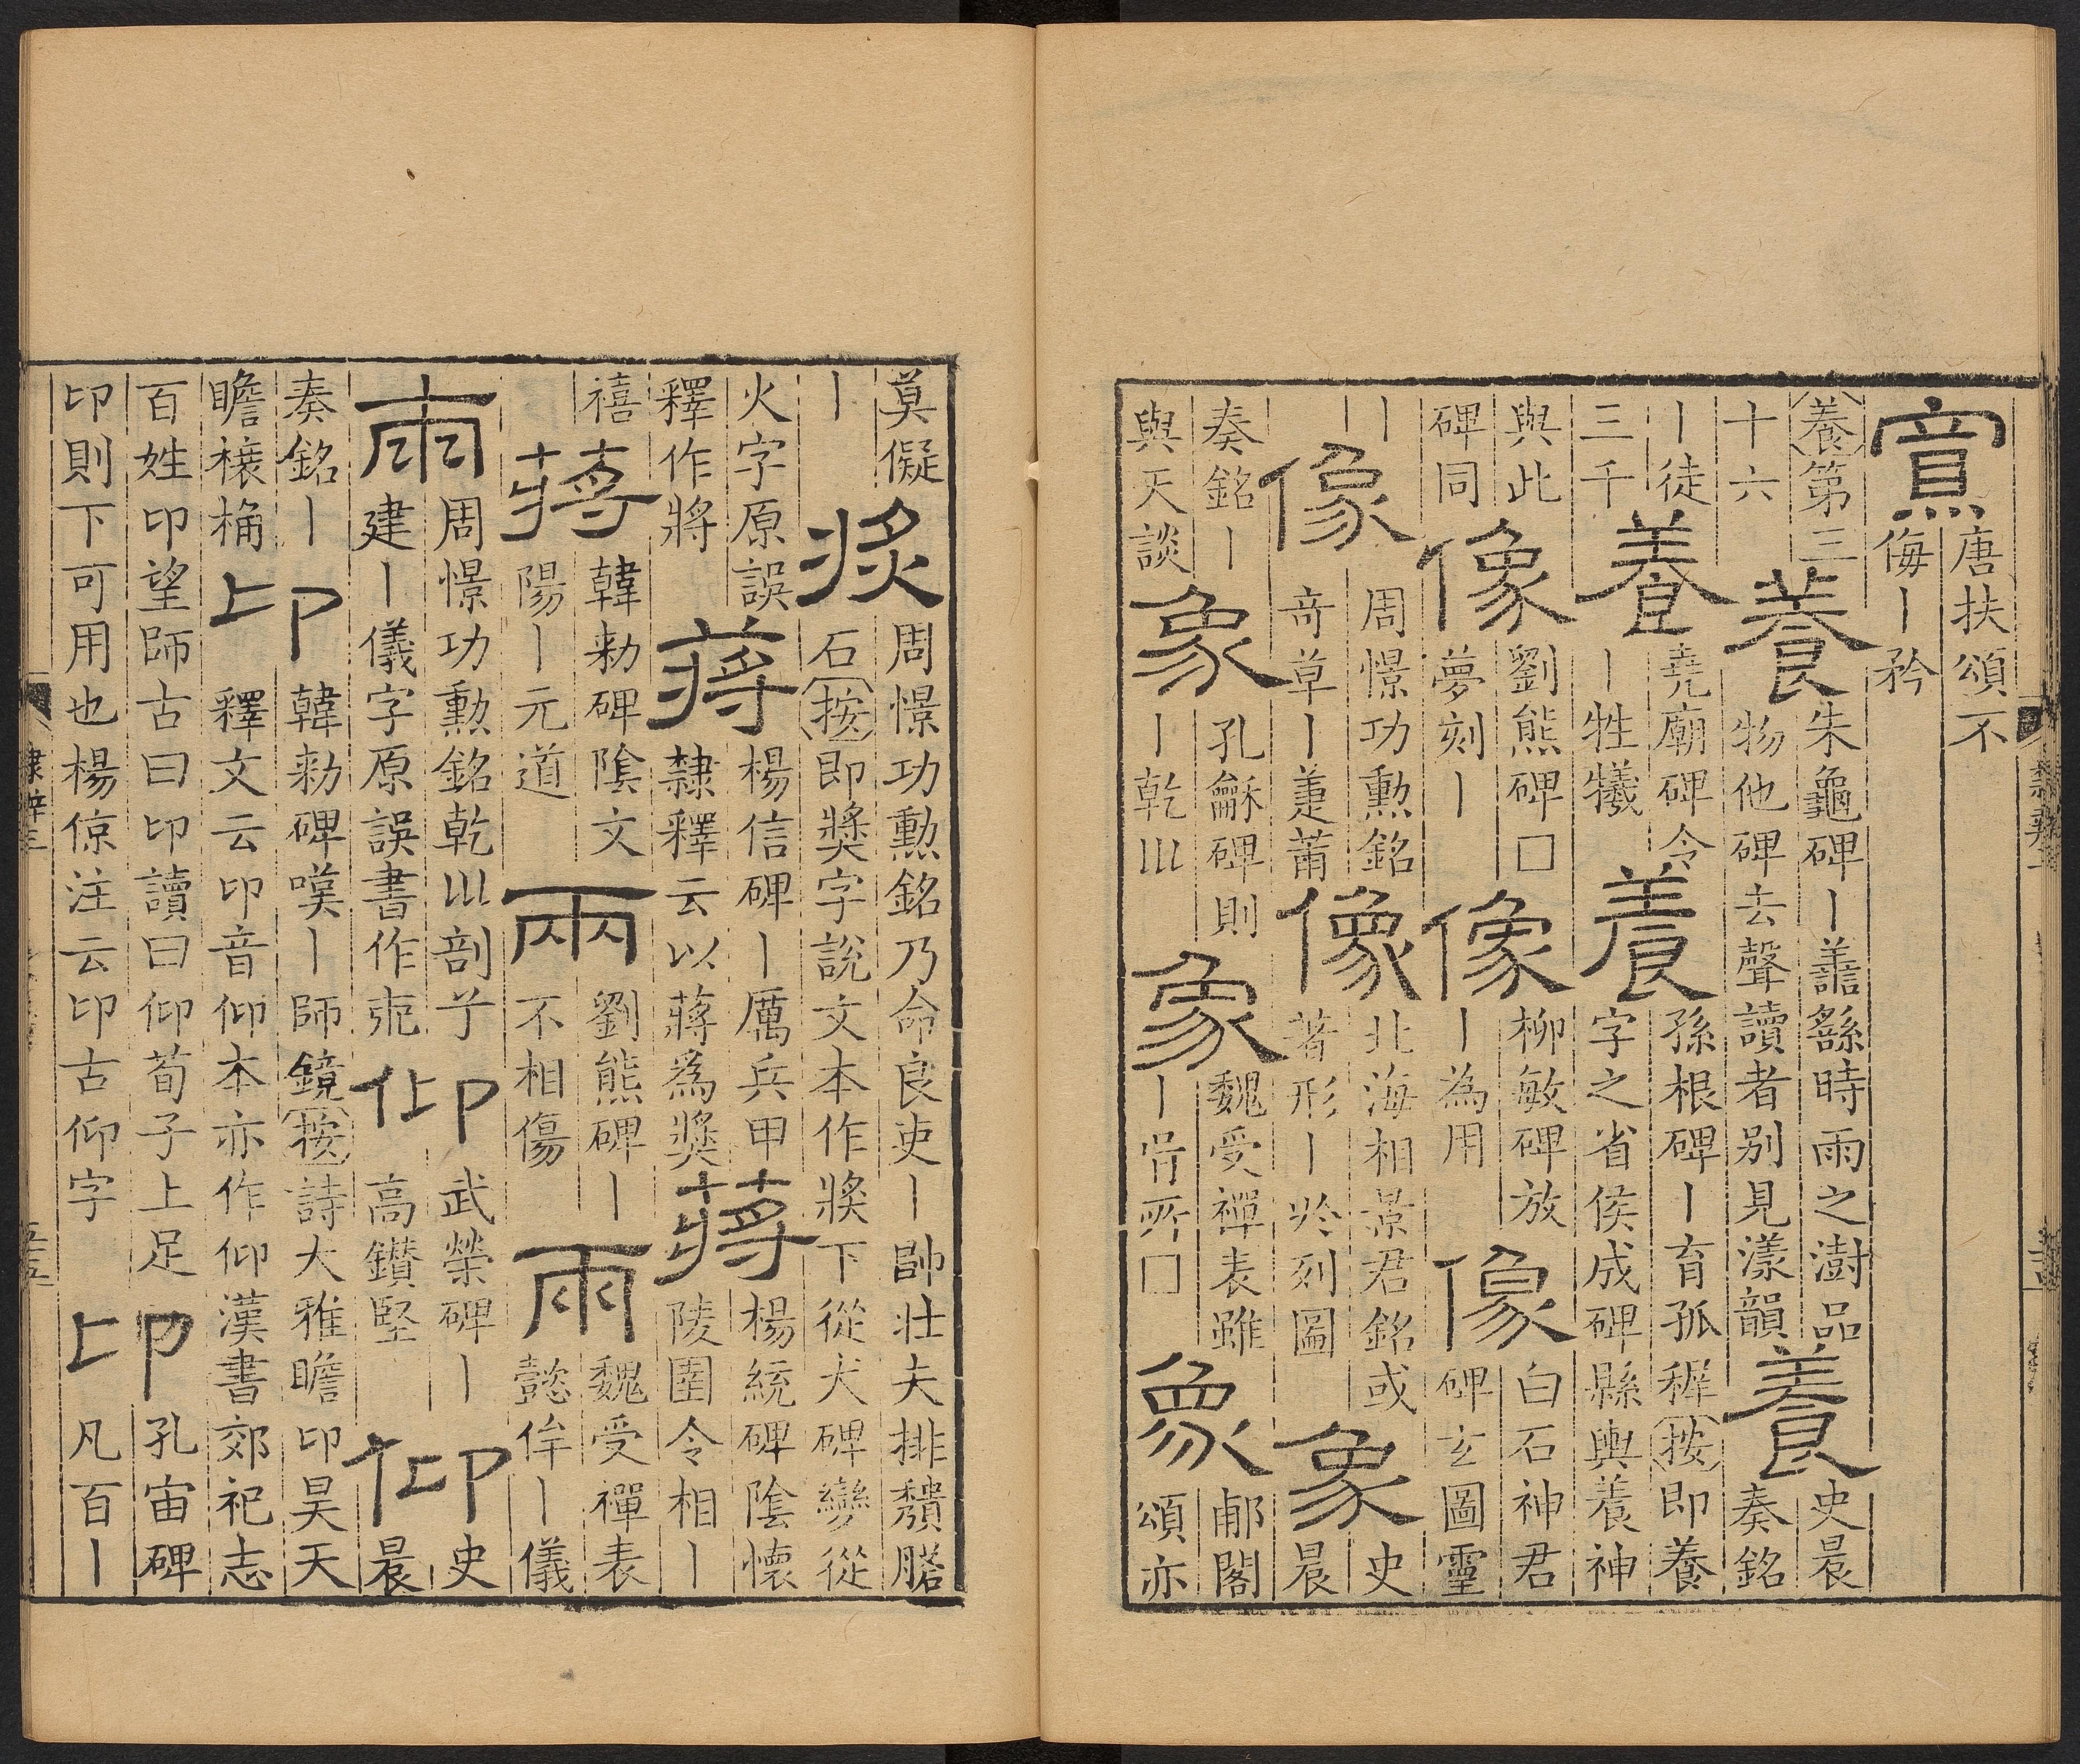 寡唐扶頌不侮丨矜
養第三十六養朱龜碑丨譱繇時雨之澍品物他碑去聲讀者别見漾韻養史晨奏銘
丨徒三千養堯廟碑令丨牲犧養孫根碑丨育孤穉按即養字之省侯成碑縣輿養神
與此碑同像劉熊碑□夢刻丨像柳敏碑放丨為用像白石神君碑玄圖靈
丨丨像周憬功勲銘奇草丨萐莆像北海相景君銘或著形丨於列圖象史晨
奏銘丨與天談象孔龢碑則丨乾川象魏受禪表雖丨胥所□象郙閣頌亦
莫儗丨㢡周憬功勲銘乃命良吏丨帥壯夫排頹石按即奬字說文本作㢡下從犬碑變從
火字原誤釋作將蔣楊信碑丨厲兵甲隸釋云以蔣爲奬蔣楊統碑陰懷陵圉令相丨
禧蔣韓勑碑陰文陽丨元道兩劉熊碑丨不相傷兩魏受禪表懿侔丨儀
兩周憬功勲銘乾川剖兮建丨儀字原誤書作仰武榮碑丨高鑽堅仰史晨
奏銘丨瞻榱桷卬韓勑碑嘆丨師鏡按詩大雅瞻卬昊天釋文云卬音仰本亦作仰漢書郊祀志
百姓卬望師古曰卬讀曰仰荀子上足卬則下可用也楊倞注云卬古仰字卬孔宙碑凡百丨